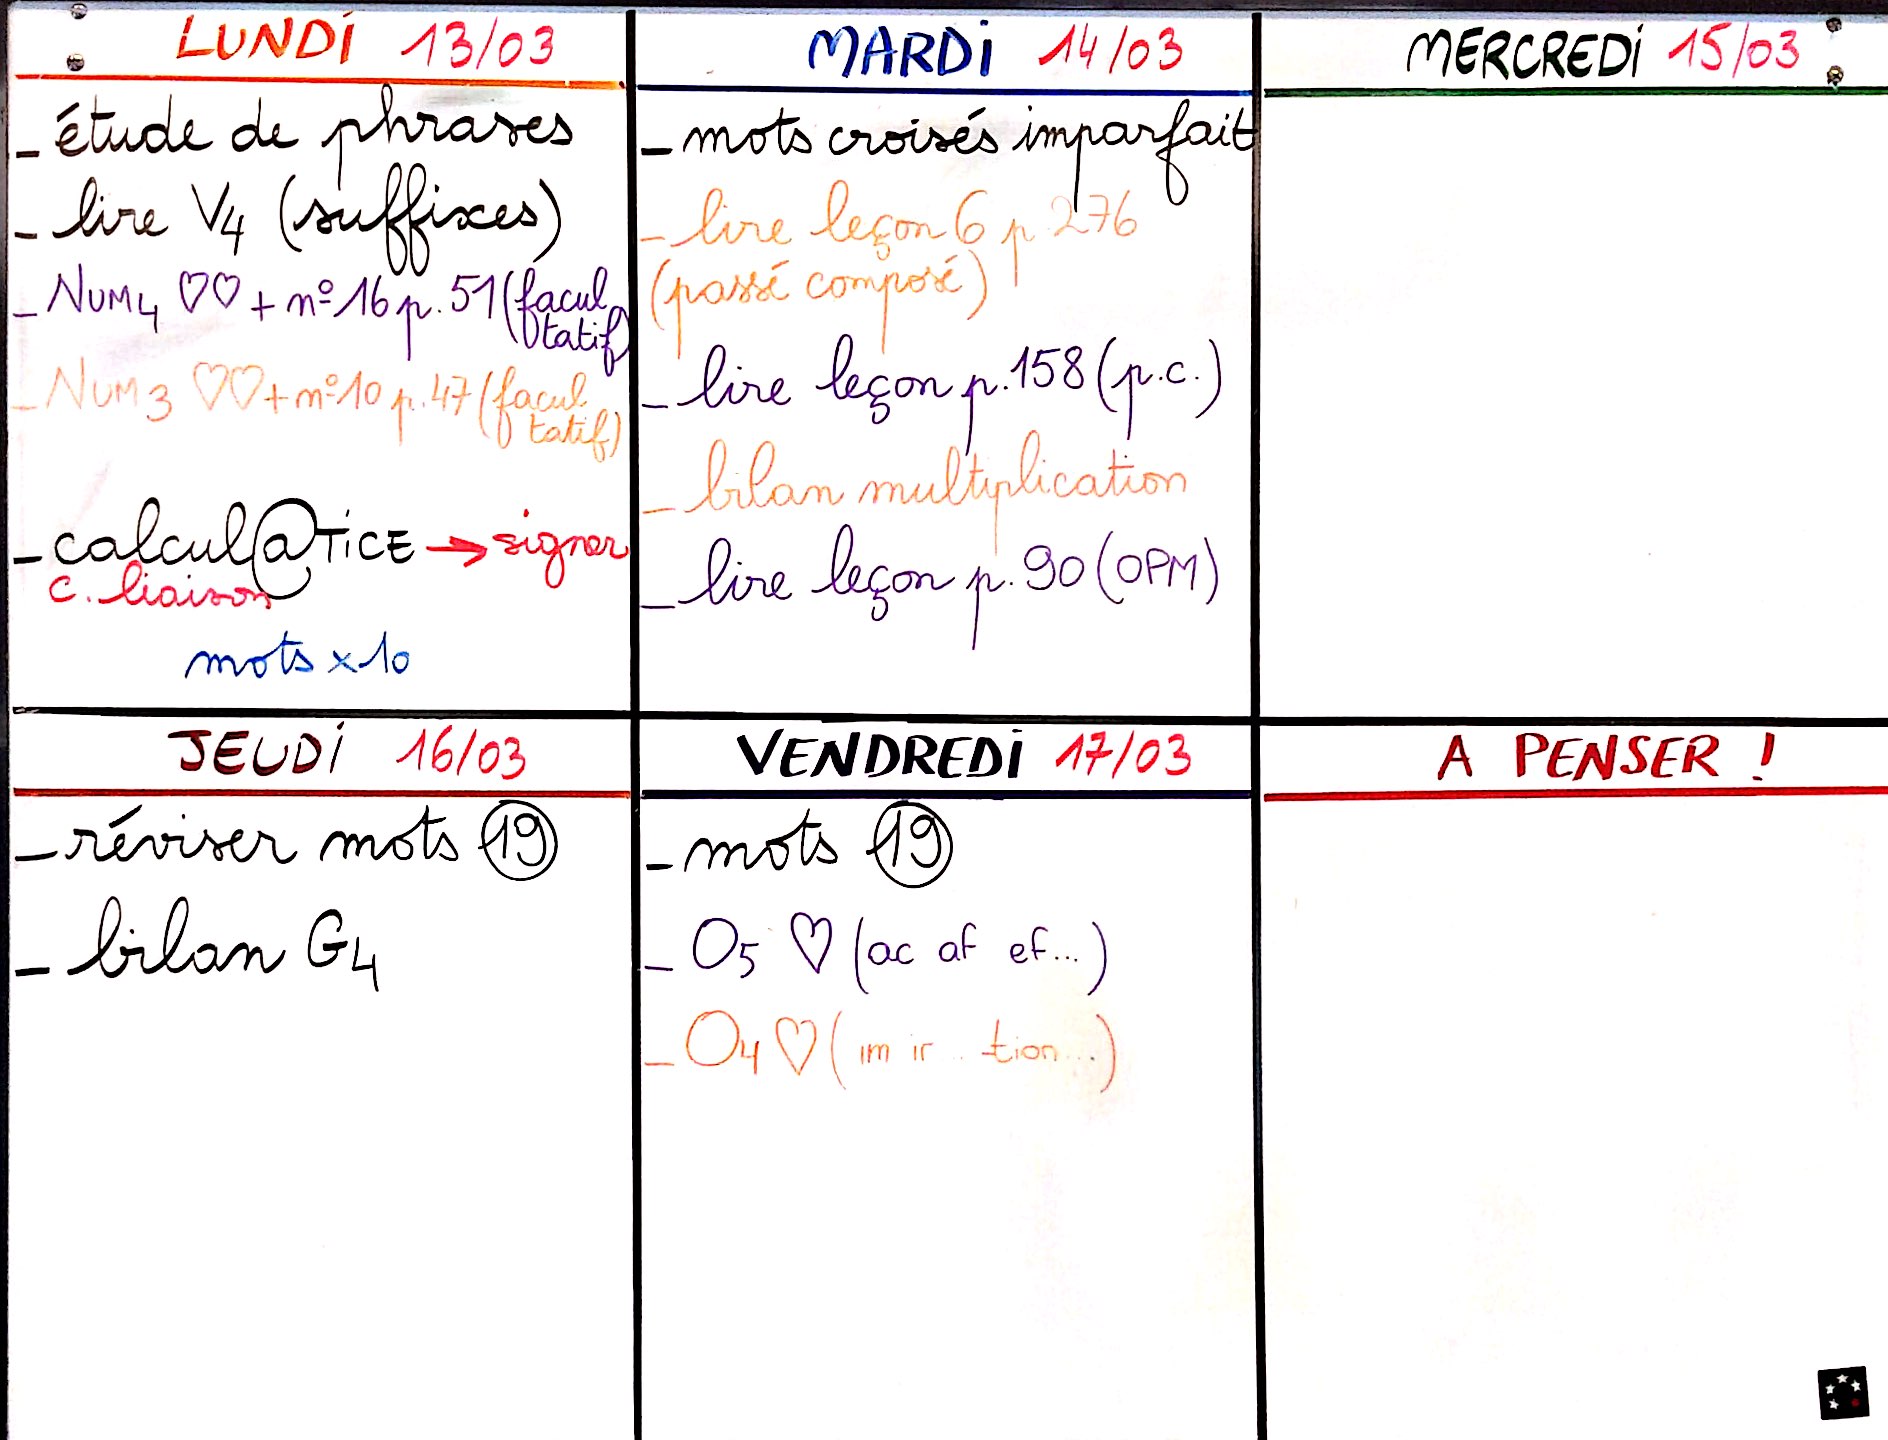 LUNDI 13/03
- étude de phrases
- lire V4 (suffixes)
- NUM4 ♡♡ + n° 16 p. 51 (facul
tatif)
- NUM3 ♡♡ + n° 10 p. 47 (facul
tatif)
- calcul@TICE → signer
c. liaison
mots x 10
MARDI 14/03
- mots croisés imparfait
- lire leçon 6 p 276
(passé composé)
- lire leçon p. 158 (p.c.)
- bilan multiplication
- lire leçon p. 90 (OPM)
MERCREDI 15/03
JEUDI 16/03
- réviser mots 19
- bilan G4
VENDREDI 17/03
- mots 19
- O5 ♡ (ac af ef...)
- O4 ♡ (im ir ... tion...)
A PENSER !